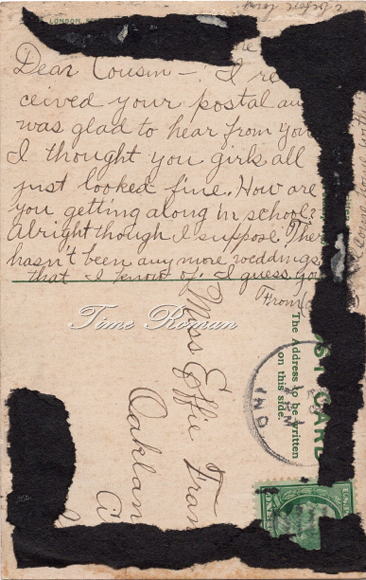 LONDON,
Dear Cousin - I re
ceived your postal an
was glad to hear from you
I thought you girls all
just looked fine. How are
you getting along in school?
Alright though I suppose. Ther
hasn't been any more weddings
that I know of. I guess you
From
Time Roman
Miss Effie Fran
Oaklan
ST CARD
The address to be written
on this side.
IND